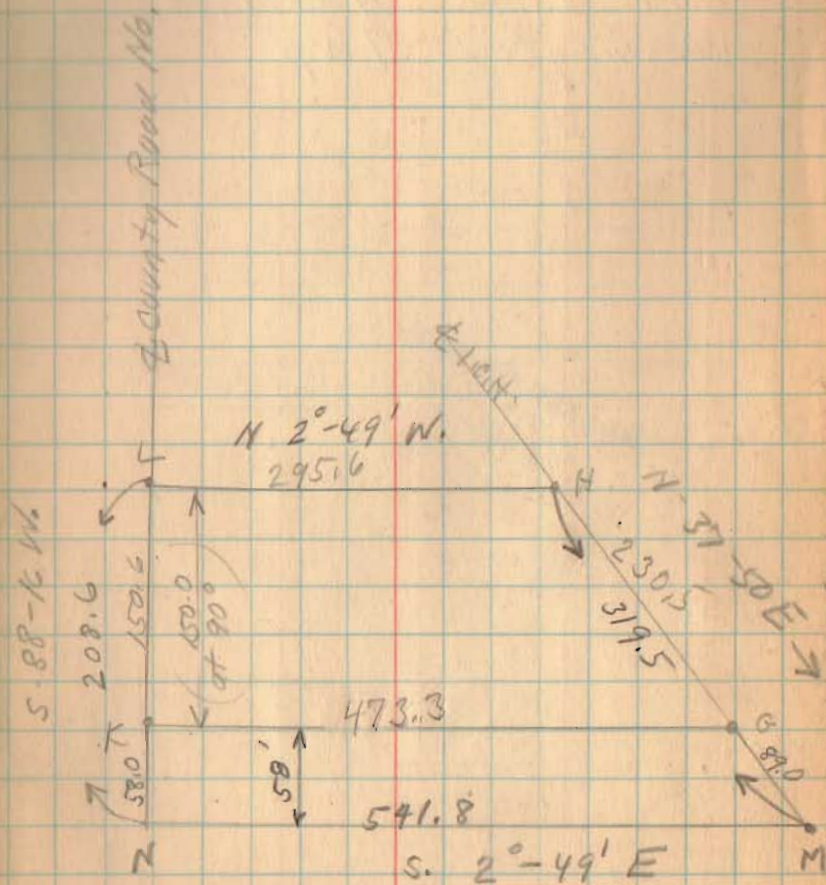 ℄ County Road No.
℄ 
N 2°-49' W.
295.6
L
H
N 37-50 E
230.5
319.5
S-88-16 W.
208.6
150.6
(150.0
at 90°)
K
473.3
G
89.0
58.0
58'
541.8
N
M
S. 2°-49' E